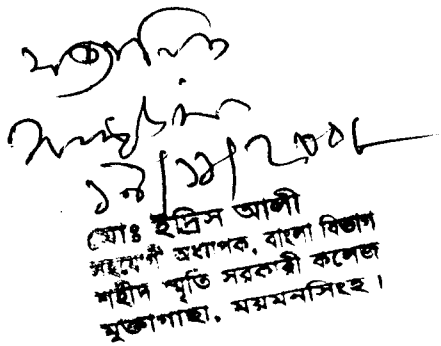 সত্যায়িত
১৪/১১/২০০৮
মোঃ ইদ্রিস আলী
সহযোগী অধ্যাপক, বাংলা বিভাগ
শহীদ স্মৃতি সরকারী কলেজ
মুক্তাগাছা, ময়মনসিংহ।